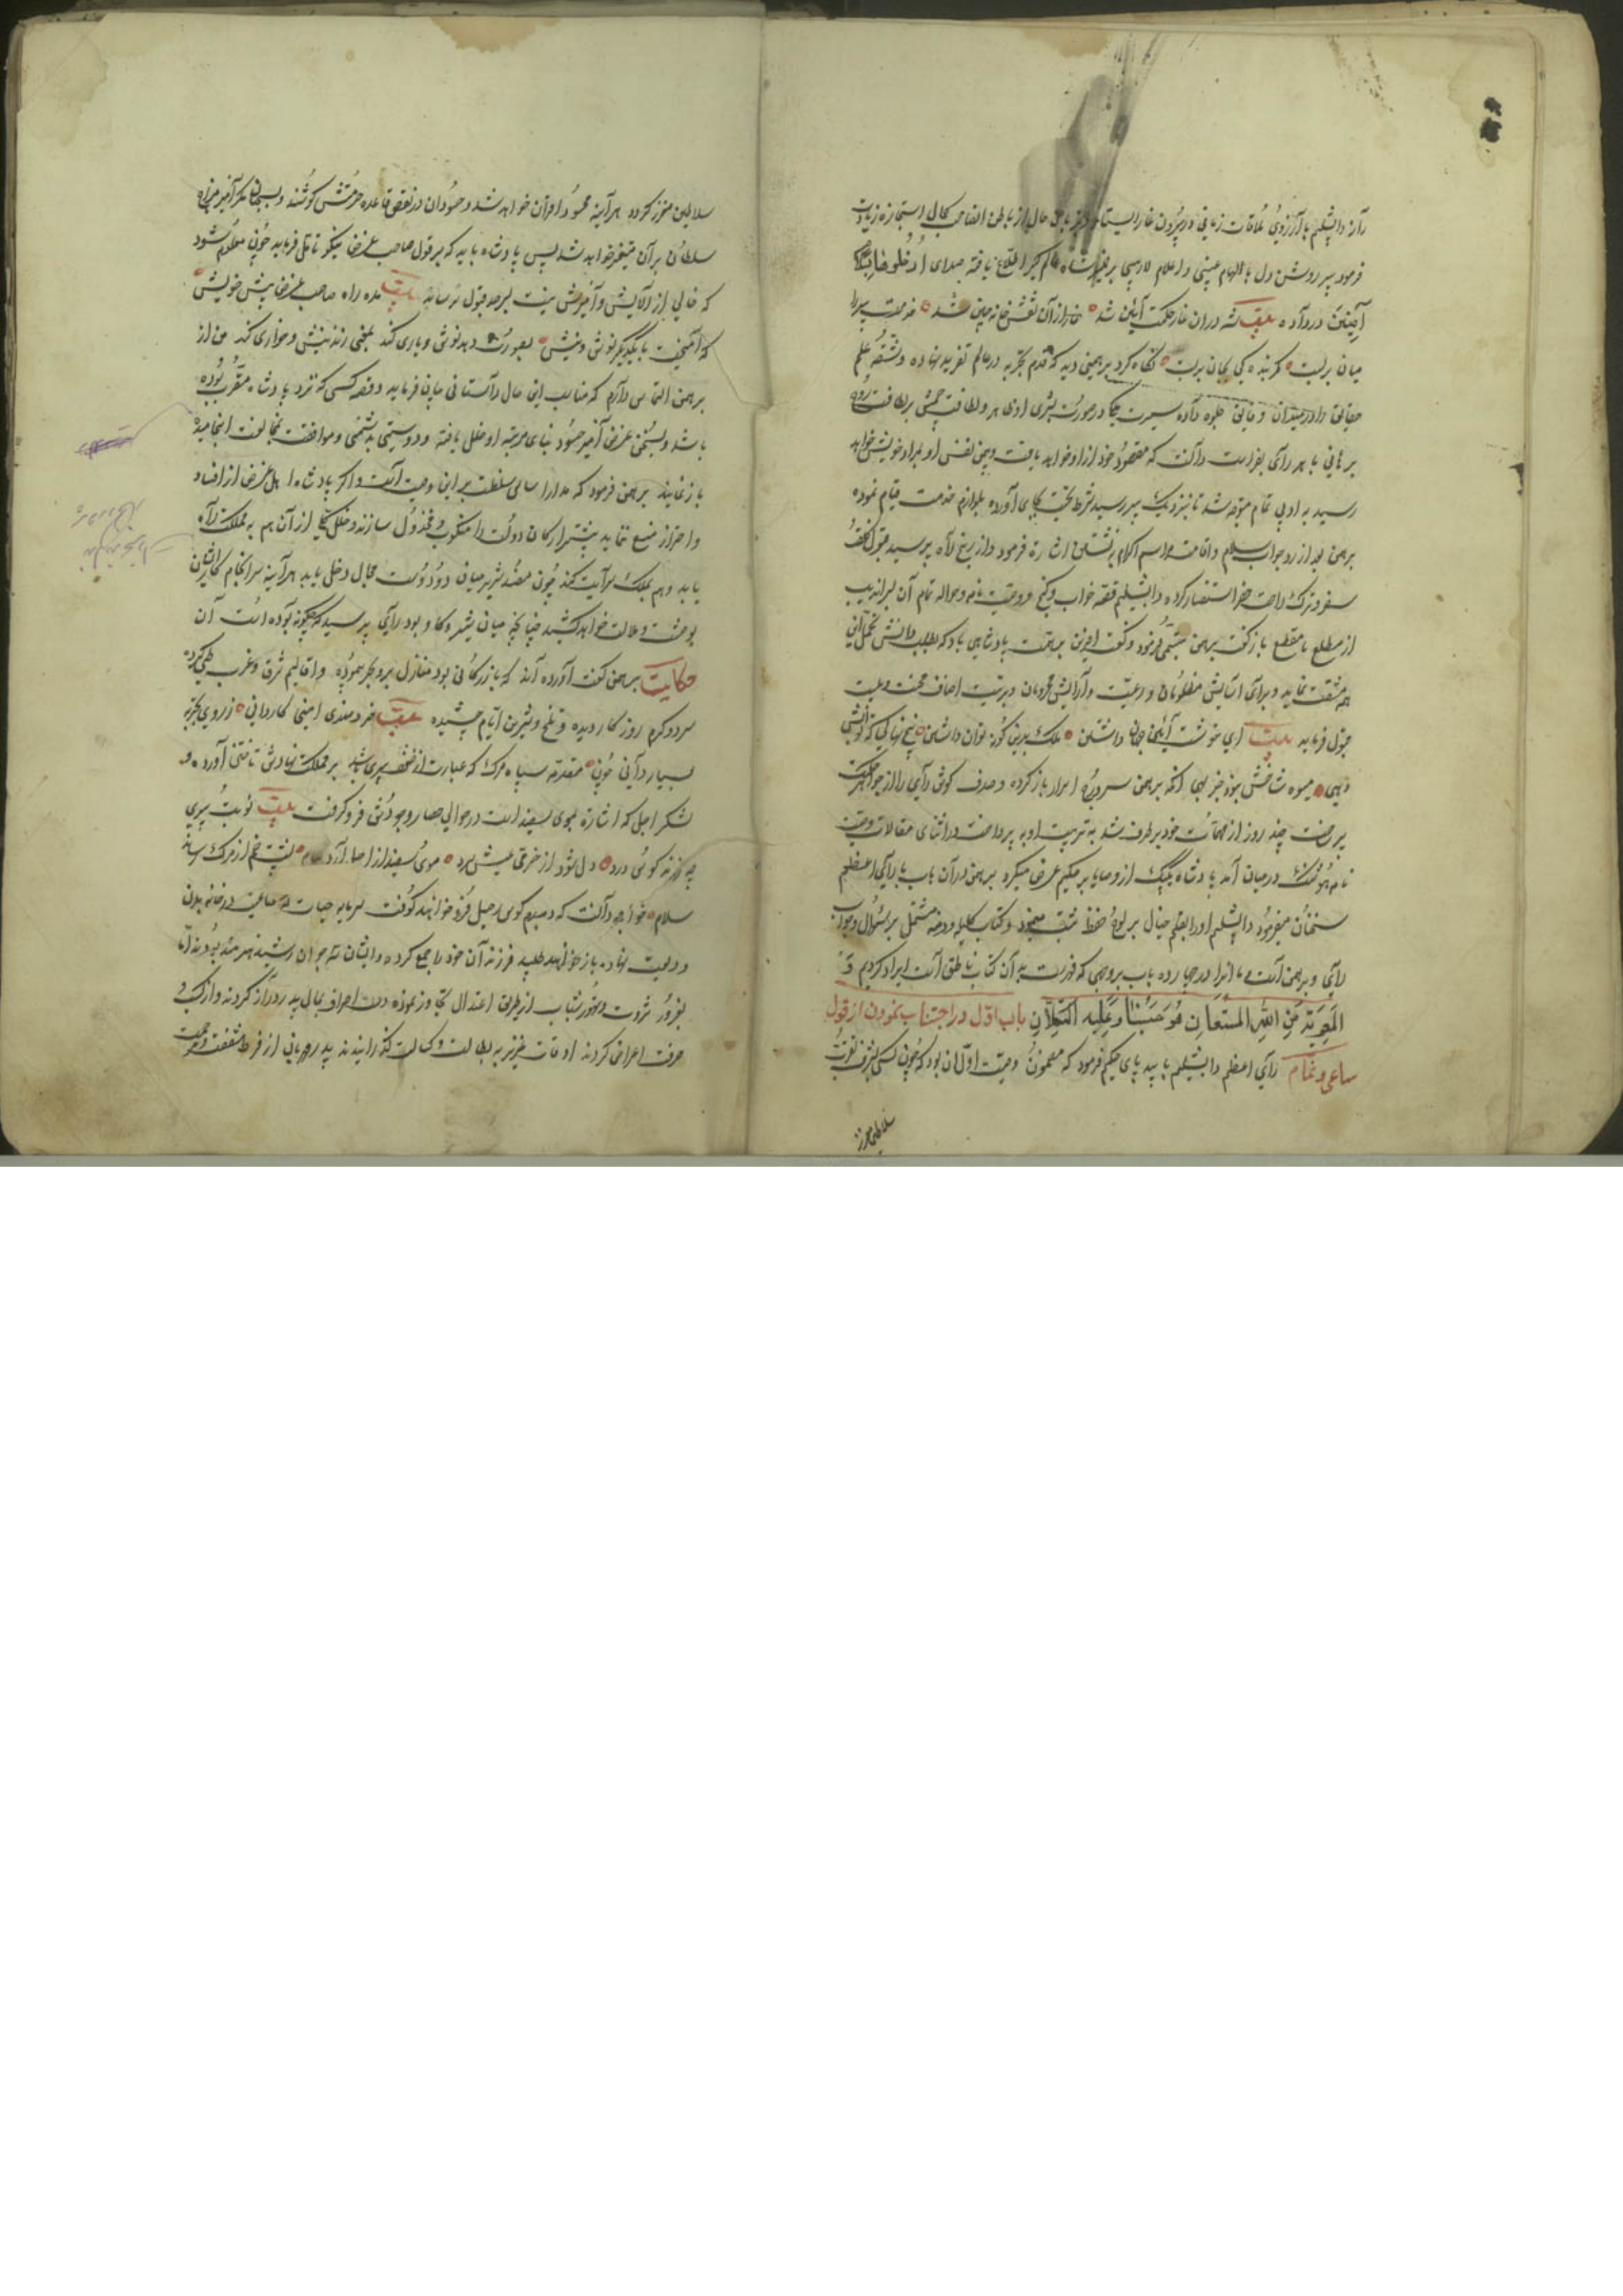 رآن دابشلیم با آرزوی ملاقات زمانی در بیرون غار ایستاد و پیر باطن حال از باطن صاحب کمال استجازه زیارت
فرمود پیر روشن دل با الهام غیبی و اعلام لاریبی بر عزیمت شاه عالم گیر اطلاع یافته صدای ادخلوها بسلام
آمنین درداد بیت شه دران غار حکمت آیین شد غار ازان نقش خانه چین شد خدمت پیر را
میان بربست کمر بنده کی بجان بربست نگاه کرد برهمنی دید که قدم تجرید در عالم تفرید نهاده و شقه علم
حقایق را در میدان دقایق جلوه داده سیرت ملکی در صورت بشری او ظاهر و لطافت جسمش بر لطافت روح
برهانی باهر رای بفراست دانست که مقصود خود ازو خواهد یافت و بیمن نفس او بمراد خویش خواهد
رسید به ادبی تمام متوجه شد تا بنزدیک پیر رسید شرط تحیت بجای آورده بلوازم خدمت قیام نموده
برهمن بعد از رد جواب سلام و اقامت مراسم اکرام به نشستن اشارة فرمود و از رنج راه پرسید
سفر و ترک راحت حضر استفسار کرده دابشلیم قصه خواب و گنج و وصیت نامه و حواله تمام آن بسراندیب
از مطلع تا مقطع بازگفت برهمن تبسمی فرمود و گفت آفرین بر همت پادشاهی باد که در طلب دانش تحمل این
همه مشقت نماید و برای آسایش مظلومان و رعیت و آرایش محرومان و تربیت اصناف محنت رعیت
قبول فرماید بیت ای خوشت آیین جهان داشتن ملک بدین گونه توان داشتن بیخ نهالی که تو آبش
دهی میوه شاخش نبود جز بهی آنگه برهمن سر درج اسرار باز کرده و صدف گوش رای را از جواهر حکمت
پر ساخت چند روز از مهمات خود بر طرف شد به تربیت او به پرداخت و در اثنای مقالات وصیت
نامه هوشنگ در میان آمد پادشاه یک یک از وصایا بر حکیم عرض میکرد برهمن در آن باب با رای اعظم
سخنان میفرمود دابشلیم او را بقلم خیال بر لوح حفظ ثبت مینمود و کتاب کلیله و دمنه مشتمل بر سؤال و جواب
رای و برهمن است و ما آنرا در چهارده باب بر وجهی که فهرست به آن کتاب ناطق است ایراد کردیم و
المعونة من الله المستعان هو حسبنا و علیه التکلان باب اول در اجتناب نمودن از قول
ساعی و نمام رای اعظم دابشلیم با بید پای حکیم فرمود که مضمون وصیت اول آن بود که چون کسی بشرف تقرب
سلاطین معزز
سلاطین معزز گردد هرآینه محسود اقران خواهد شد و حسودان در نقض قاعده حرمتش کوشند و بسخنان مکر آمیز مزاج
سلطان بر آن متغیر خواهد شد پس پادشاه باید که بر قول صاحب غرض نیکو تامل فرماید چون معلوم شود
که خالی از آلایش و آمیزش نیست بسرحد قبول نرساند بیت مده راه صاحب غرض پیش خویش
که آمیخت با یکدیگر نوش و نیش بصورت دهد نوش و یاری کند بمعنی زند نیش و خواری کند من از
برهمن التماس دارم که مناسب این حال داستانی بیان فرماید و قصه کسی که نزد پادشاه مقرب بوده
باشد و بسخن غرض آمیز حسود بنای مرتبه او خلل یافته و دوستی بدشمنی و موافقت بمخالفت انجامیده
باز نماید برهمن فرمود که مدار اساس سلطنت بر این وصیت است و اگر پادشاه اهل غرض از افساد
و احتراز منع ننماید بیشتر ارکان دولت را منکوب و مخذول سازند و خلل کلی از آن هم به مملکت راه
یابد و هم بملک سرایت کند و چون مفسد شریر میان دو دوست مجال دخل یابد هرآینه سرانجام کار ایشان
بوحشت و ملالت خواهد کشید چنانچه میان شیر و گاو بود رای پرسید که چگونه بوده است آن
حکایت برهمن گفت آورده اند که بازرگانی بود منازل برو بحر پیموده و اقالیم شرق و غرب طی کرده
سرد و گرم روزگار دیده و تلخ و شیرین ایام چشیده بیت خردمندی امینی کاردانی ز روی تجربه
بسیاردانی چون مقدمه سپاه مرگ که عبارت از ضعف پیری باشد بر مملکت نهادش تاختن آورد و
لشکر اجل که اشارة بموی سفید است در حوالی حصار وجودش فرو گرفت بیت نوبت پیری
چو زند کوس درد دل شود از خرمی عیش سرد موی سفید از اجل آرد پیام پشت خم از مرگ رساند
سلام خواجه دانست که دمبدم کوس رحیل فرو خواهند کوفت سرمایه حیات که بضاعیت در خانه بدن
ودیعت نهاده باز خواهند طلبید فرزندان خود را جمع کرده و ایشان سه جوان رشید هنرمند بودند اما
بغرور ثروت و تهور شباب از طریق اعتدال تجاوز نموده دست اسراف بمال پدر دراز کردند و از کسب و
حرفت اعراض کردند اوقات عزیز به بطالت و کسالت گذرانیدند پدر مهربانی از فرط شفقت و مرحمت